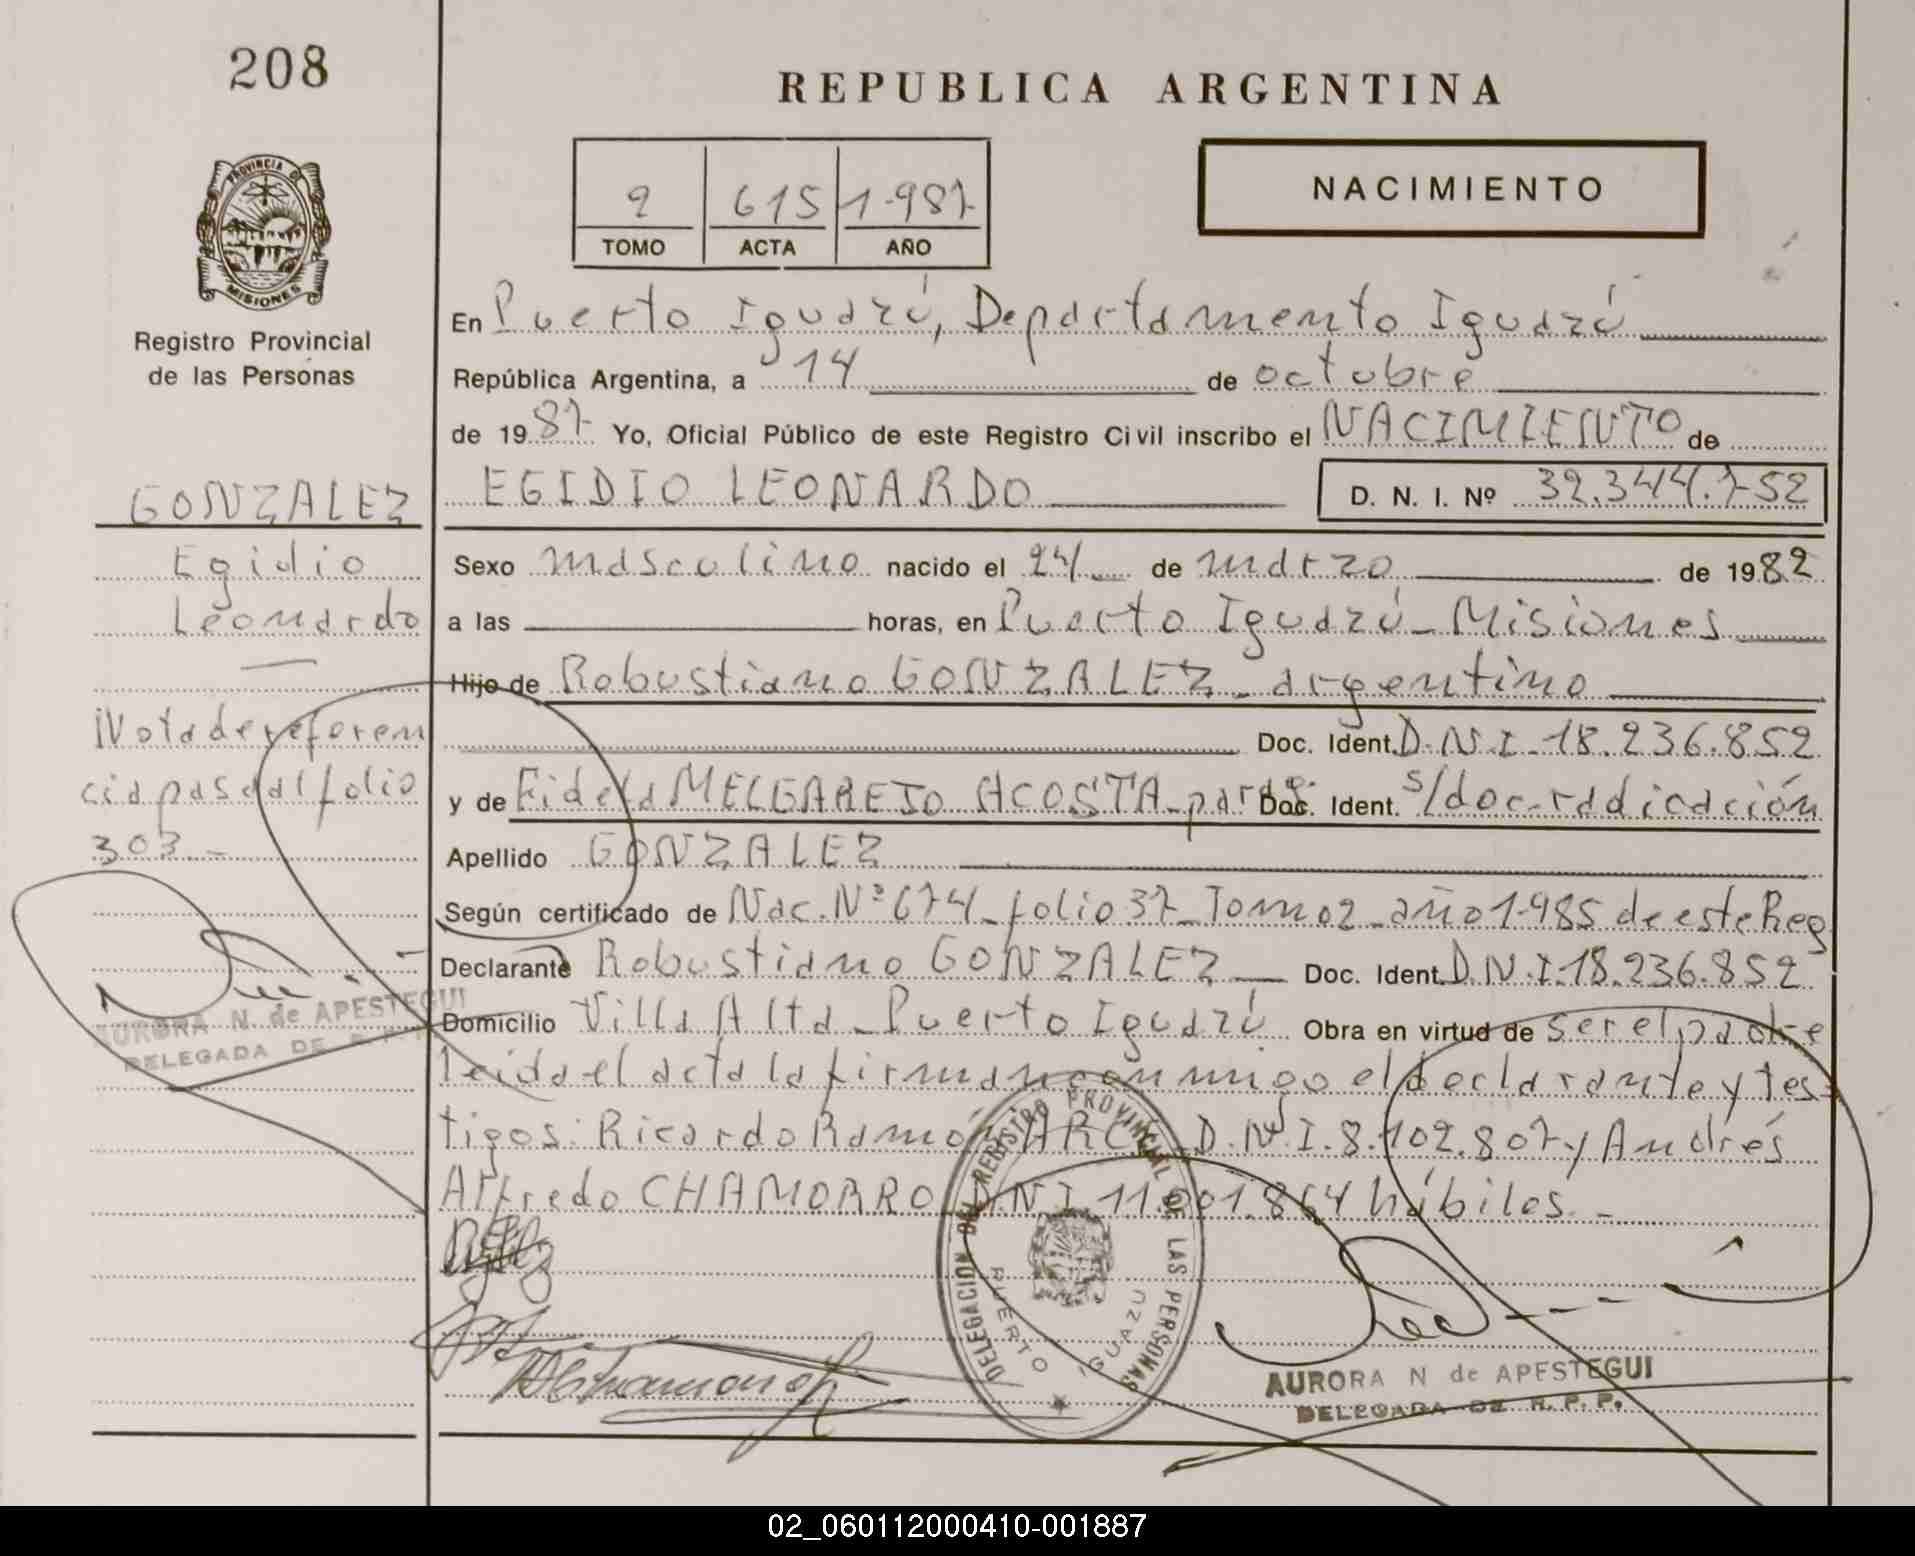 208
REPUBLICA ARGENTINA
PROVINCIA DE
MISIONES
Registro Provincial
de las Personas
2 615 1.987
TOMO ACTA AÑO
NACIMIENTO
En Puerto Iguazú, Departamento Iguazú
República Argentina, a 14 de octubre
de 1987 Yo, Oficial Público de este Registro Civil inscribo el NACIMIENTO de
EGIDIO LEONARDO D. N. I. Nº 32.344.752
GONZALEZ
Egidio
Leonardo
Nota de referen
cia pasa al folio
303.-
AURORA N. de APESTEGUI
DELEGADA DE R. P. P.
Sexo masculino nacido el 24 de marzo de 1982
a las horas, en Puerto Iguazú - Misiones
Hijo de Robustiano GONZALEZ - argentino
Doc. Ident. D.N.I. 18.236.852
y de Fidela MELGAREJO ACOSTA - parag. Doc. Ident. s/doc. radicación
Apellido GONZALEZ
Según certificado de Nac. Nº 674 - folio 37 - Tomo 2 - año 1.985 de este Reg
Declarante Robustiano GONZALEZ Doc. Ident. D.N.I. 18.236.852
Domicilio Villa Alta - Puerto Iguazú Obra en virtud de ser el padre
leida el acta la firman conmigo el declarante y tes-
tigos: Ricardo Ramón D.N.I. 8.102.807 y Andrés
Alfredo CHAMORRO D.N.I. 11.001.864 hábiles.-
DELEGACION DEL REGISTRO PROVINCIAL DE LAS PERSONAS
PUERTO IGUAZU
AURORA N de APESTEGUI
DELEGADA DE R. P. P.
02_060112000410-001887